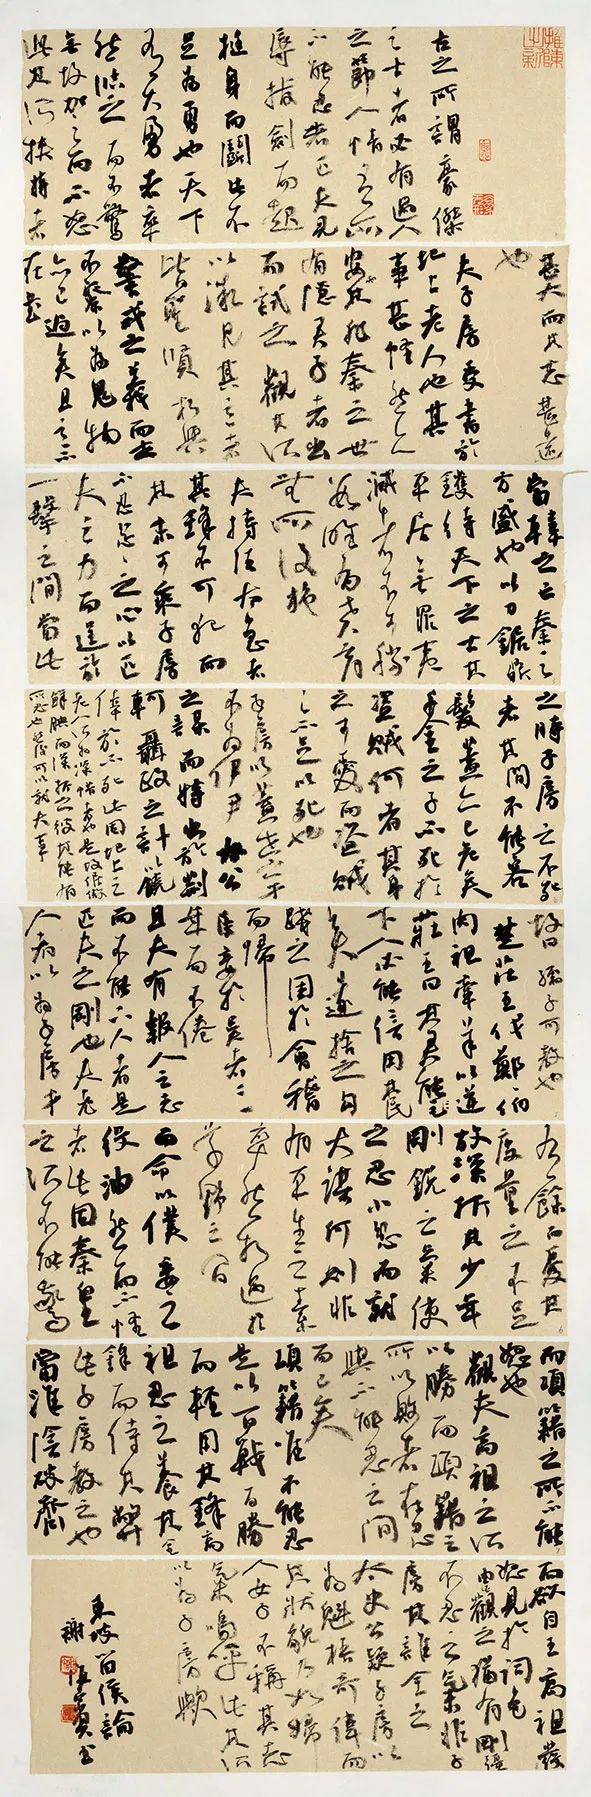 古之所謂豪傑
之士者必有過人
之節人情有所
不能忍者匹夫見
辱拔劍而起
挺身而鬭此不
足為勇也天下
有大勇者卒
然臨之而不驚
無故加之而不怒
此其所挾持者
甚大而其志甚遠
也
夫子房受書於
圯上老人也其
事甚怪然亦
安知非秦之世
有隱君子者出
而試之觀其所
以微見其意者
皆聖賢相與
警戒之義而世
不察以為鬼物
亦已過矣且其意不
在書
當韓之亡秦之
方盛也以刀鋸鼎
鑊待天下之士其
平居無罪夷
滅者不可勝
數雖有賁育
無所復施
夫持法太急者
其鋒不可犯而
其末可乘子房
不忍忿忿之心以匹
夫之力而逞於
一擊之間當此
之時子房之不死
者其間不能容
髮蓋亦已危矣
千金之子不死於
盜賊何者其身
之可愛而盜賊
之不足以死也
子房以蓋世之才
不為伊尹太公
之謀而特出於荊
軻聶政之計以僥
倖於不死此固圯上之
老人所為深惜者也是故倨傲
鮮腆而深折之彼其能有
所忍也然後可以就大事
故曰孺子可教也
楚莊王伐鄭鄭伯
肉袒牽羊以逆
莊王曰其君能
下人必能信用其民
矣遂捨之句
踐之困於會稽
而歸
臣妾於吳者三
年而不倦
且夫有報人之志
而不能下人者是
匹夫之剛也夫老
人者以為子房才
有餘而憂其
度量之不足
故深折其少年
剛銳之氣使
之忍小忿而就
大謀何則非
有平生之素
卒然相遇於
草野之間
而命以僕妾之
役油然而不怪
者此固秦皇
之所不能驚
而項籍之所不能
怒也
觀夫高祖之所
以勝而項籍之
所以敗者在能忍
與不能忍之間
而已矣
項籍唯不能忍
是以百戰百勝
而輕用其鋒高
祖忍之養其全
鋒而待其斃
此子房教之也
當淮陰破齊
而欲自王高祖發
怒見於詞色
由是觀之猶有剛強
不忍之氣非子
房其誰全之
太史公疑子房以
為魁梧奇偉而
其狀貌乃如婦
人女子不稱其志
氣嗚呼此其所
以為子房歟
東坡留侯論
謝